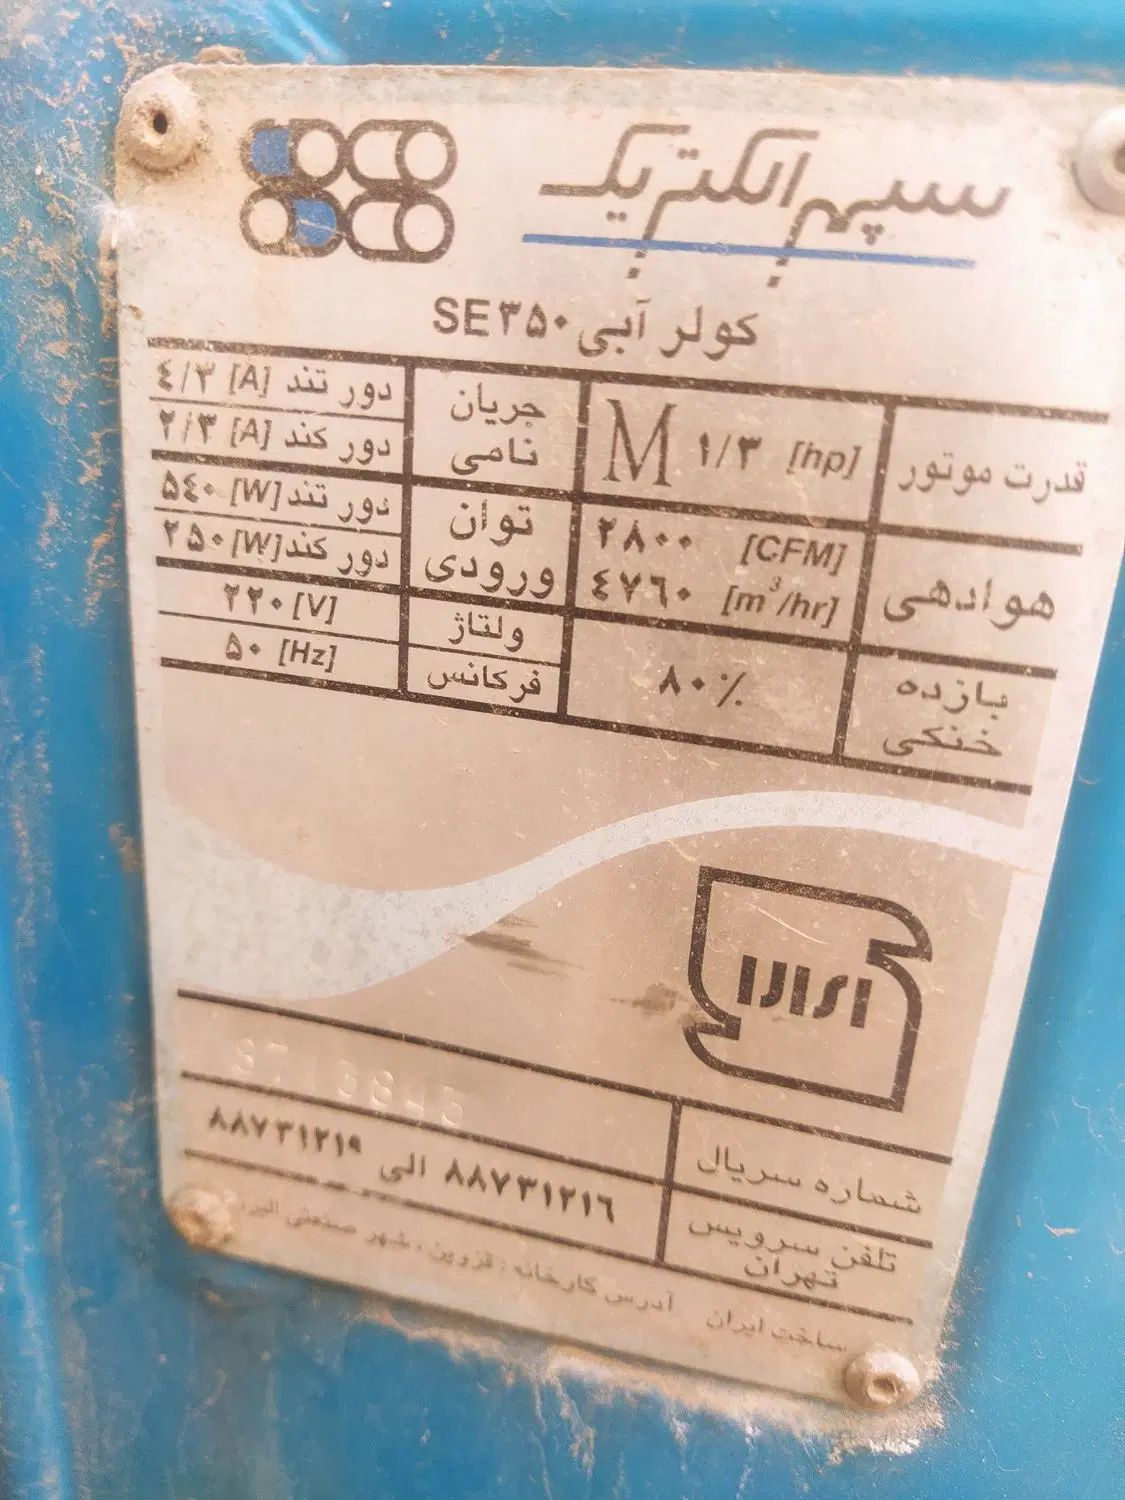 سپهر الکتریک
کولر آبی SE۳۵۰
قدرت موتور M ۱/۳ [hp]
جریان نامی
دور تند [A] ۴/۳
دور کند [A] ۲/۳
هوادهی
۲۸۰۰ [CFM]
۴۷۶۰ [m³/hr]
توان ورودی
دور تند [W] ۵۴۰
دور کند [W] ۲۵۰
بازده خنکی ۸۰٪
ولتاژ ۲۲۰ [V]
فرکانس ۵۰ [Hz]
شماره سریال
تلفن سرویس تهران ۸۸۷۳۱۲۱۶ الی ۸۸۷۳۱۲۱۹
ساخت ایران آدرس کارخانه : قزوین ، شهر صنعتی البرز